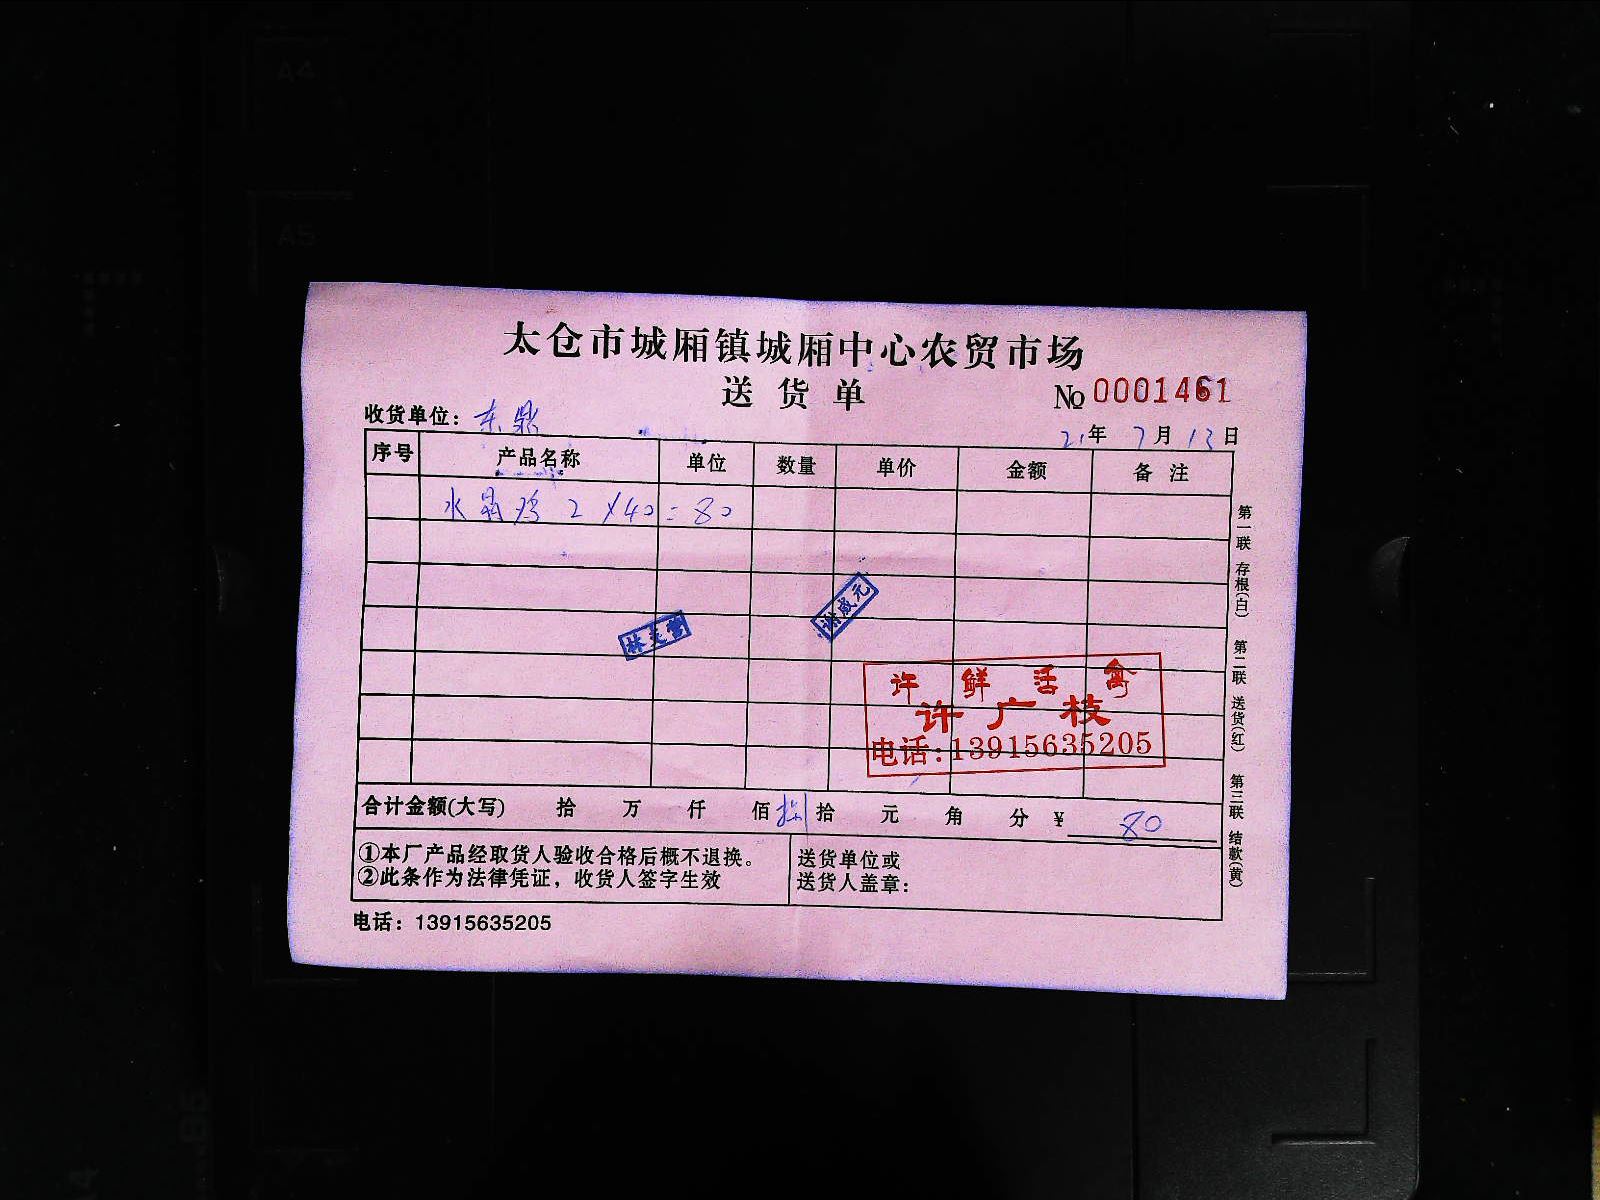 太仓市城厢镇城厢中心农贸市场
送货单
№ 0001461
收货单位：东鼎
21年 7月 13日
序号 产品名称 单位 数量 单价 金额 备注
水晶鸡 2×40=80
谢咸元
许鲜活禽
许广枝
电话:13915635205
合计金额(大写) 拾 万 仟 佰 捌拾 元 角 分 ¥ 80
①本厂产品经取货人验收合格后概不退换。
②此条作为法律凭证，收货人签字生效
送货单位或
送货人盖章：
电话：13915635205
第一联 存根(白) 第二联 送货(红) 第三联 结款(黄)
A4
A5